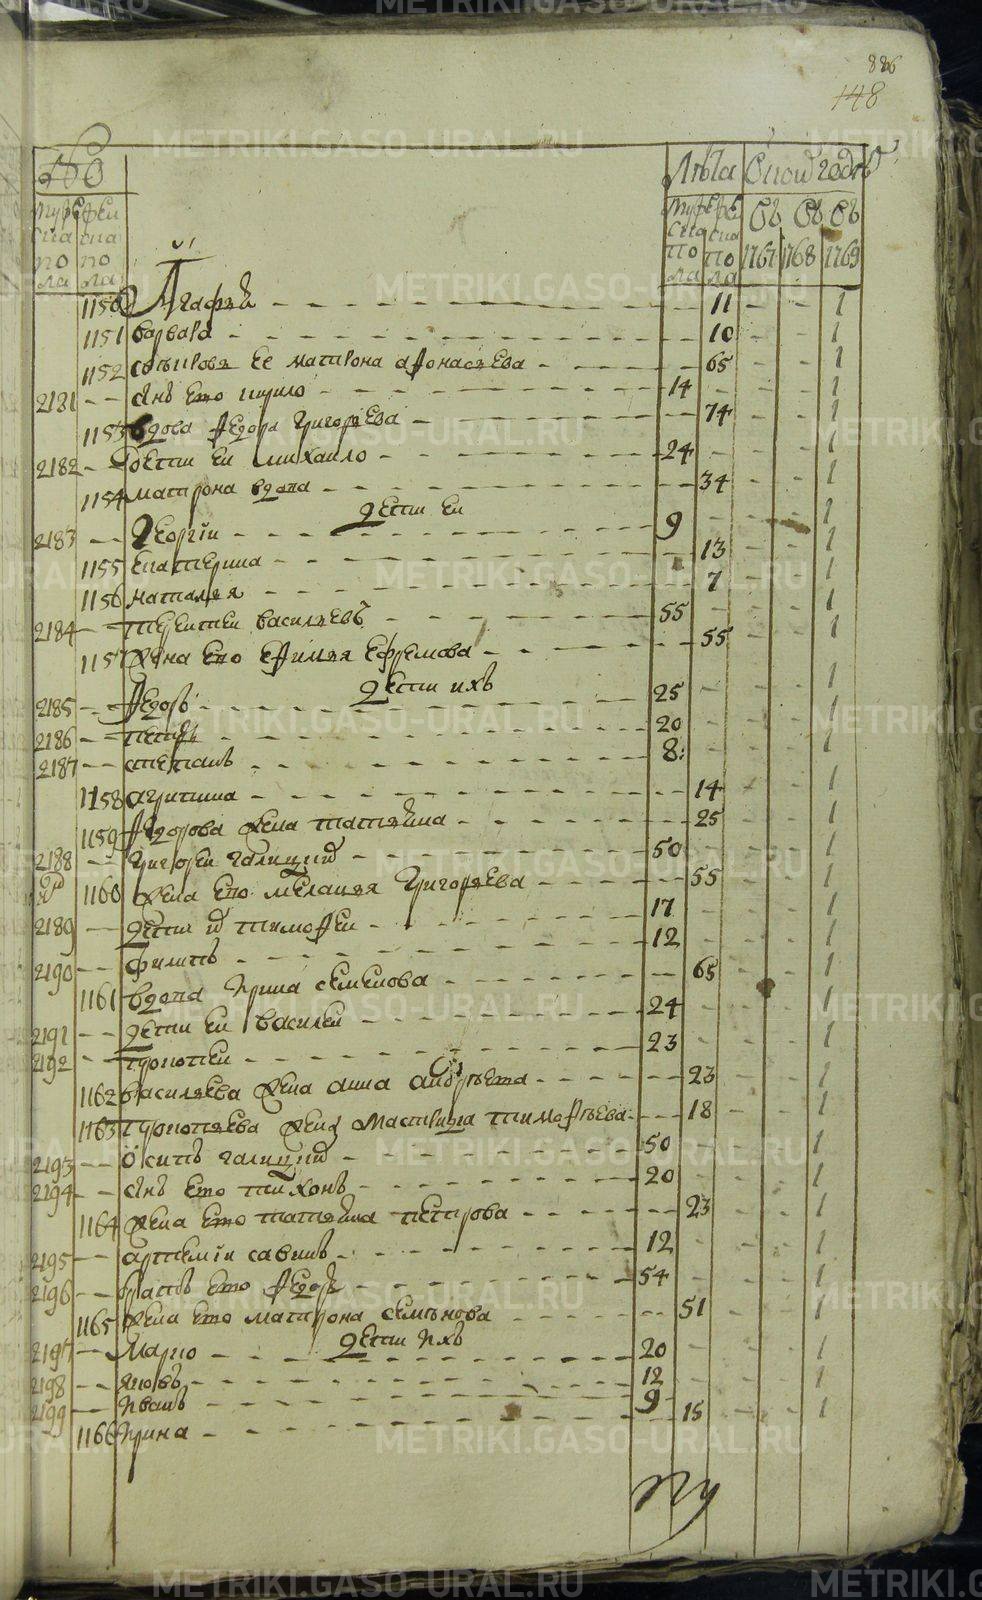 886
148
№
Лѣта Опои годѣ
мужеска пола женска пола мужеска пола женска пола Въ 1767 Въ 1768 Въ 1769
1150 Агафья 11 1
1151 варвара 10 1
1152 свекровь ее матрона афонасьева 65 1
2181 сынъ его кирило 14 1
1153 вдова федора григорьева 74 1
2182 дети ей михаило 24 1
1154 матрона вдова 34 1
дети ей
2183 георгiи 9 1
1155 катерина 13 1
1156 наталья 7 1
2184 терентеи василевъ 55 1
1157 жена его ефимья ефремова 55 1
дети ихъ
2185 федоръ 25 1
2186 петръ 20 1
2187 степанъ 8 1
1158 агрипина 14 1
1159 федорова жена татьяна 25 1
2188 григореи галицкий 50 1
1160 жена его меланья григорьева 55 1
2189 дети тимофеи 17 1
2190 филипъ 12 1
1161 вдова ирина семенова 65 1
2191 дети ей василеи 24 1
2192 прокопеи 23 1
1162 василева жена анна 23 1
1163 прокопьева жена настасья тимофѣева 18 1
2193 осипъ галицкий 50 1
2194 сынъ его тихонъ 20 1
1164 жена его татьяна петрова 23 1
2195 артемiи савинъ 12 1
2196 братъ его федоръ 54 1
1165 жена его матрона семенова 51 1
дети ихъ
2197 марко 20 1
2198 яковъ 12 1
2199 иванъ 9 1
1166 ирина 15
METRIKI.GASO-URAL.RU